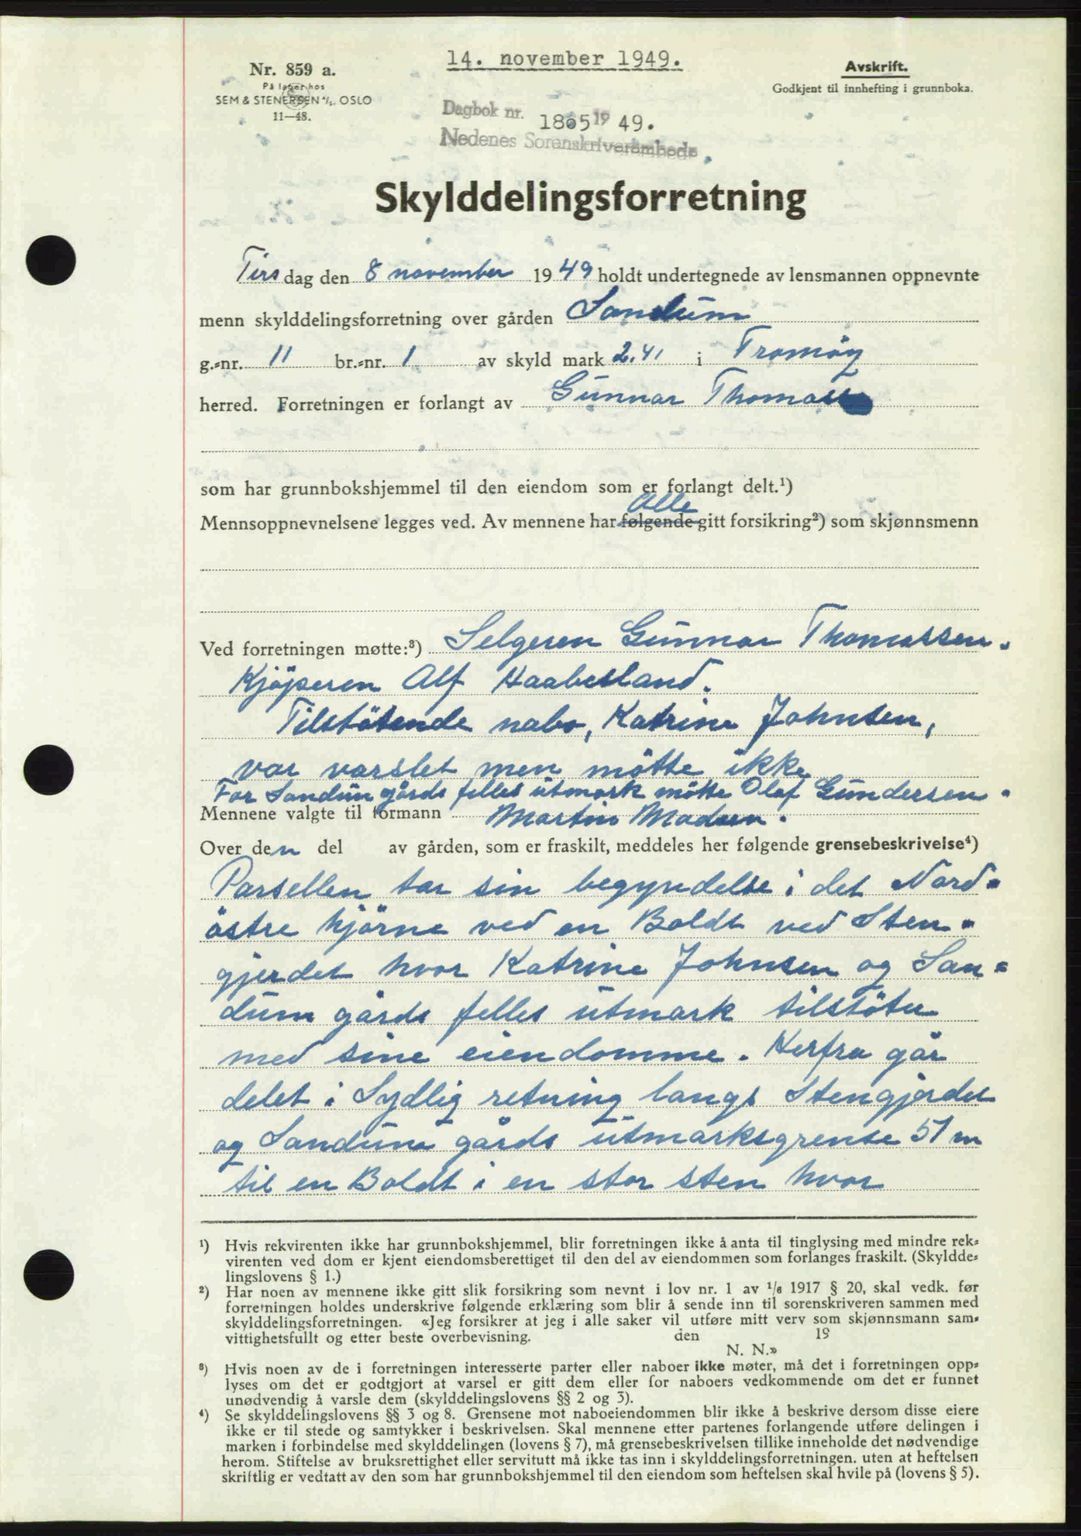 14. november 1949.
Avskrift.
Godkjent til innhefting i grunnboka.
Nr. 859 a.
På lager hos
SEM & STENERSEN A/S. OSLO
11—48.
Dagbok nr. 1865 19 49.
Nedenes Sorenskriverembede
Skylddelingsforretning
Tirsdag den 8 november 1949 holdt undertegnede av lensmannen oppnevnte
menn skylddelingsforretning over gården Sandum
g.-nr. 11 br.-nr. 1 av skyld mark 2.41 i Tromøy
herred. Forretningen er forlangt av Gunnar
som har grunnbokshjemmel til den eiendom som er forlangt delt.¹)
Alle
Mennsoppnevnelsene legges ved. Av mennene har følgende gitt forsikring²) som skjønnsmenn
Ved forretningen møtte:³) Selgeren Gunnar Thomassen.
Kjöperen Alf Haabesland.
Tilstötende nabo, Katrine Johnsen,
var varslet men mötte ikke
For Sandum gårds felles utmark mötte Olaf Gundersen.
Mennene valgte til formann Martin Madsen.
Over den del av gården, som er fraskilt, meddeles her følgende grensebeskrivelse⁴)
Parsellen tar sin begyndelse i det Nord-
östre hjörne ved en Boldt ved Sten-
gjerdet hvor Katrine Johnsen og San-
dum gårds felles utmark tilstöter
med sine eiendomme. Herfra går
delet i Sydlig retning langs Stengjerdet
og Sandum gårds utmarksgrense 51 m
til en Boldt i en stor sten hvor
¹) Hvis rekvirenten ikke har grunnbokshjemmel, blir forretningen ikke å anta til tinglysing med mindre rek-
virenten ved dom er kjent eiendomsberettiget til den del av eiendommen som forlanges fraskilt. (Skyldde-
lingslovens § 1.)
²) Har noen av mennene ikke gitt slik forsikring som nevnt i lov nr. 1 av 1/6 1917 § 20, skal vedk. før
forretningen holdes underskrive følgende erklæring som blir å sende inn til sorenskriveren sammen med
skylddelingsforretningen. «Jeg forsikrer at jeg i alle saker vil utføre mitt verv som skjønnsmann sam-
vittighetsfullt og etter beste overbevisning. den 19
N. N.»
³) Hvis noen av de i forretningen interesserte parter eller naboer ikke møter, må det i forretningen opp-
lyses om det er godtgjort at varsel er gitt dem eller for naboers vedkommende om det er funnet
unødvendig å varsle dem (skylddelingslovens §§ 2 og 3).
⁴) Se skylddelingslovens §§ 3 og 8. Grensene mot naboeiendommen blir ikke å beskrive dersom disse eiere
ikke er til stede og samtykker i beskrivelsen. Skal mennene etter partenes forlangende utføre delingen i
marken i forbindelse med skylddelingen (lovens § 7), må grensebeskrivelsen tillike inneholde det nødvendige
herom. Stiftelse av bruksrettighet eller servitutt må ikke tas inn i skylddelingsforretningen, uten at heftelsen
skriftlig er vedtatt av den som har grunnbokshjemmel til den eiendom som heftelsen skal hvile på (lovens § 5).